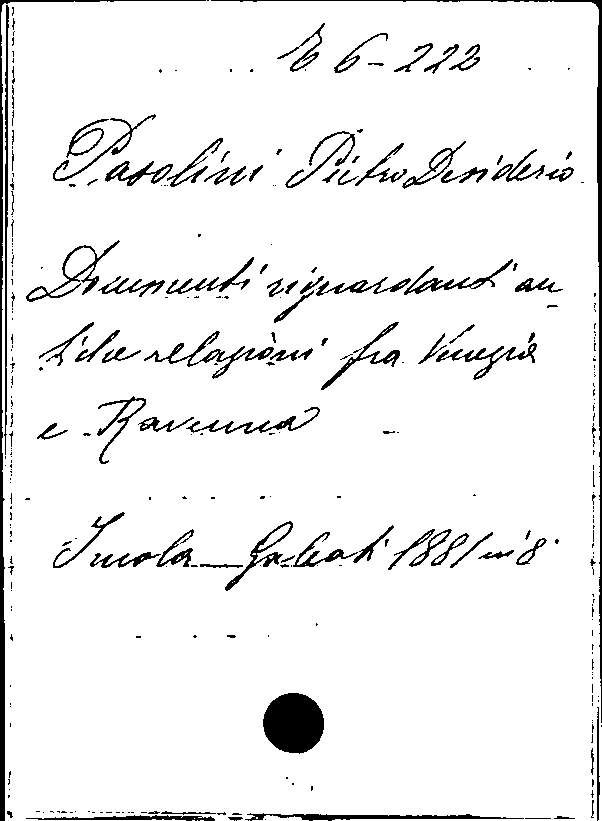 E 6-222
Pasolini Pietro Desiderio
Documenti riguardanti an
tiche relazioni fra Venezia
e Ravenna
Imola - Galeati 1881 in 8°